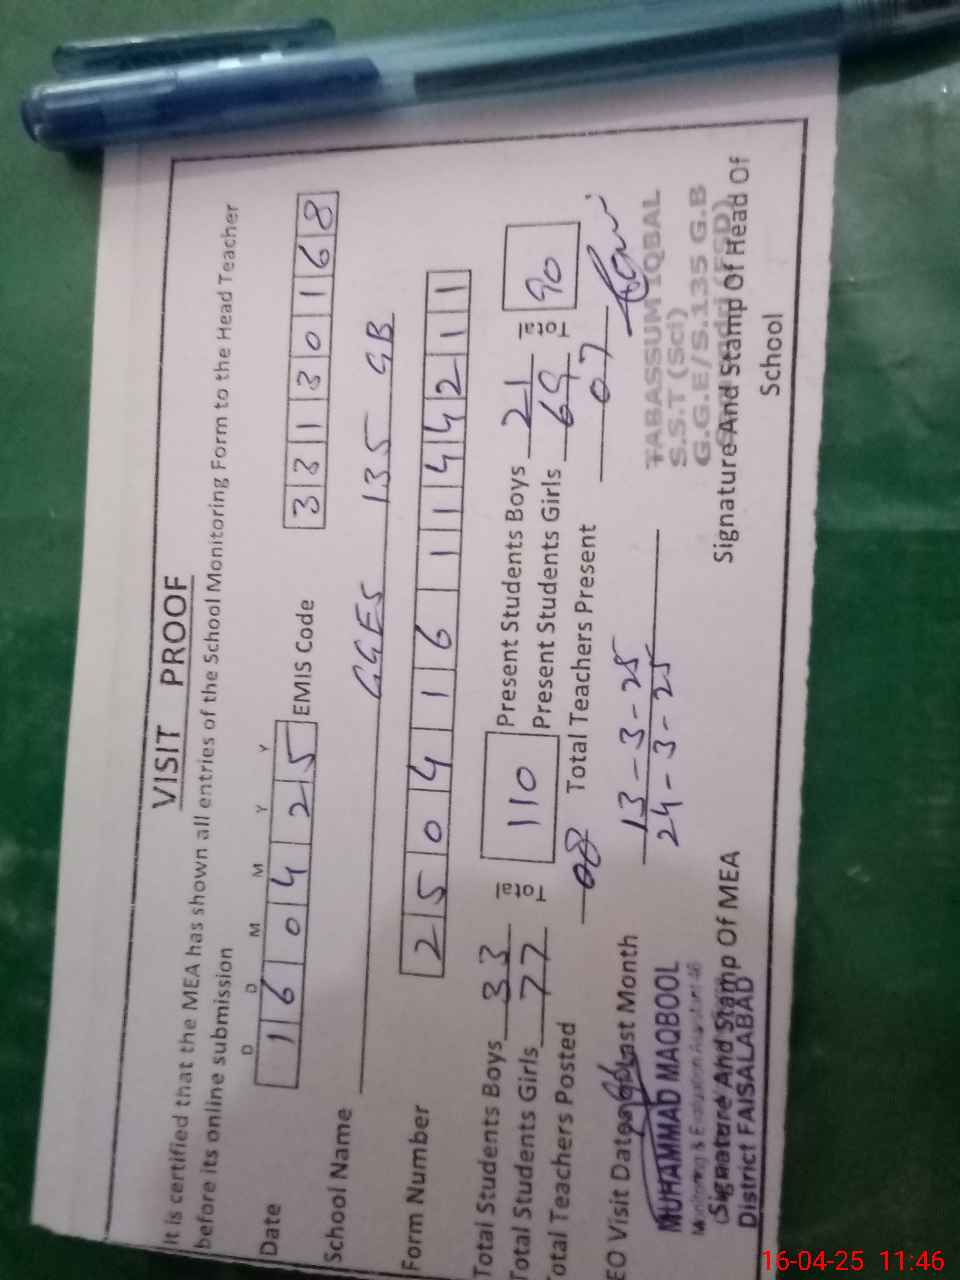 VISIT PROOF
It is certified that the MEA has shown all entries of the School Monitoring Form to the Head Teacher
before its online submission
D D M M Y Y
Date 160425 EMIS Code 33130168
School Name GGES 135 GB
Form Number 2504161144211
Total Students Boys 33 Total 110 Present Students Boys 21 Total 90
Total Students Girls 77 Present Students Girls 69
Total Teachers Posted 08 Total Teachers Present 07
EO Visit Date Last Month 13-3-25
24-3-25
MUHAMMAD MAQBOOL
Monitoring & Evaluation Assistant 46
Signature And Stamp Of MEA
District FAISALABAD
TABASSUM IQBAL
S.S.T (Sci)
G.G.E/S.135 G.B
Signature And Stamp Of Head Of
School
16-04-25 11:46